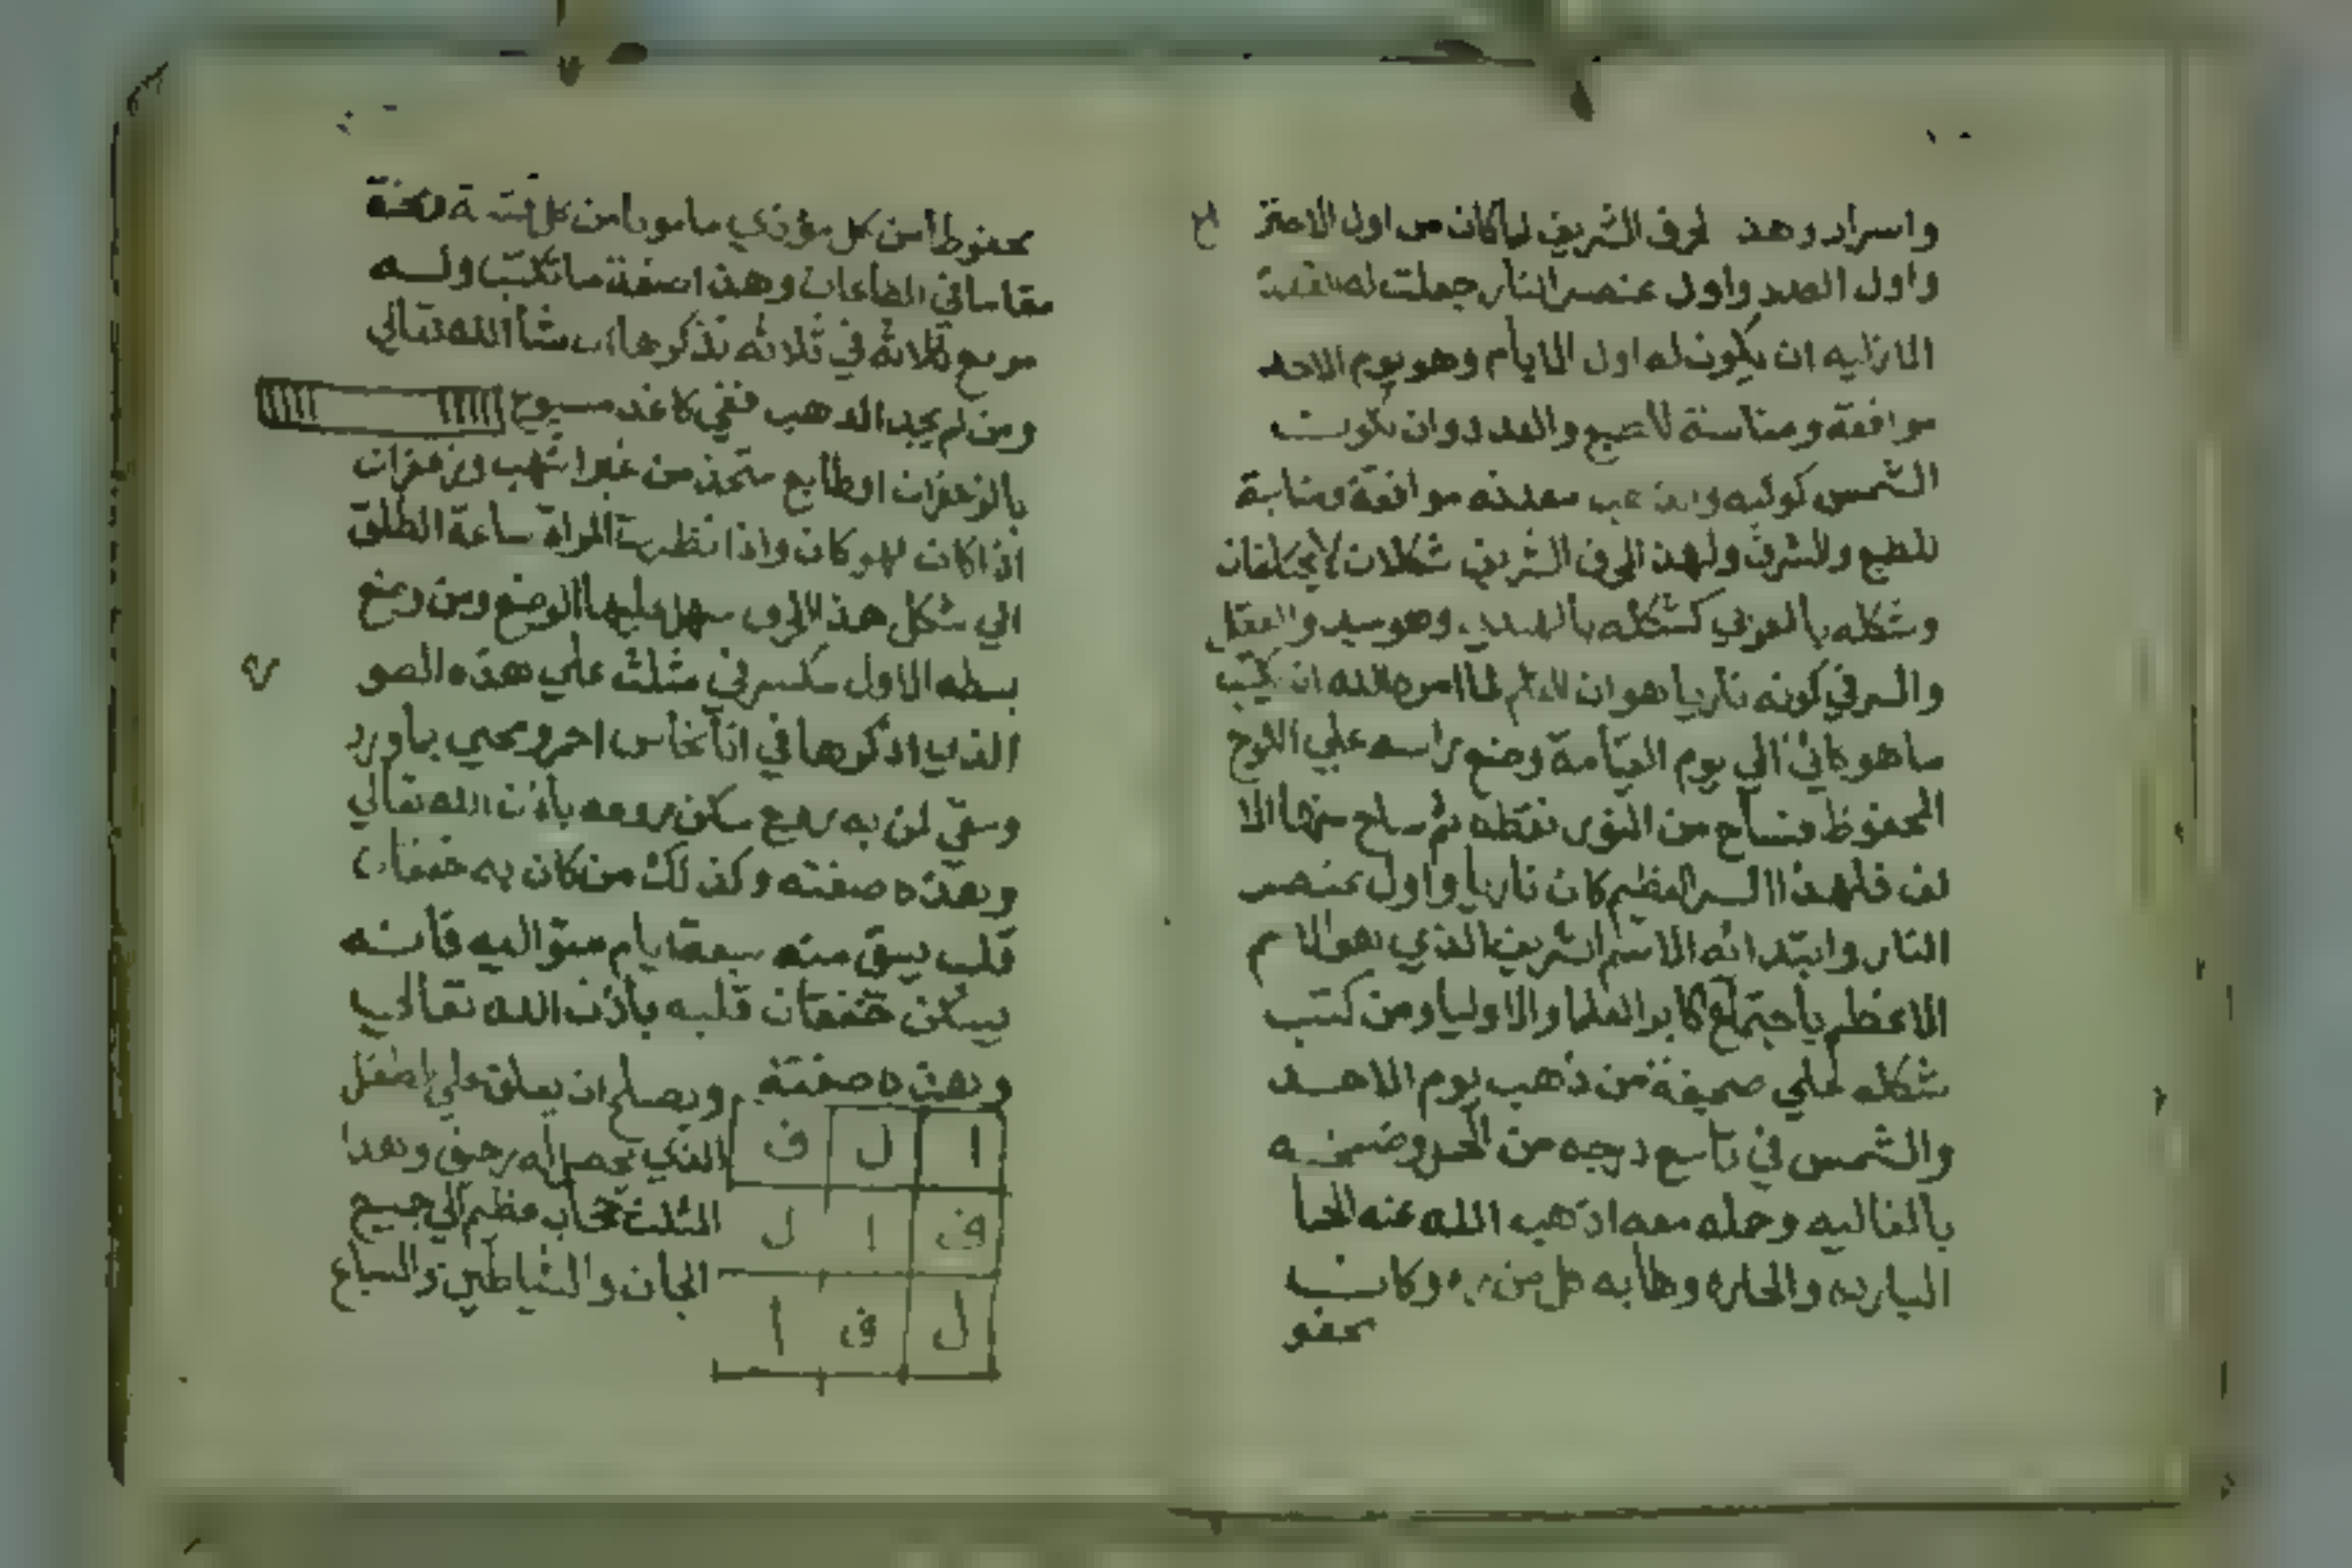 واسرار وهذ لحرف الشريف لما كان من اول الاحرف
واول العدد واول عنصر النار جعلت له
الازليه ان يكون له اول الايام وهو يوم الاحد
موافقة ومناسبة للطبع والعدد وان تكون
الشمس كوكبه والذهب معدنه موافقة ومناسبة
للطبع والشرف ولهذ الحرف الشريف شكلان لا يختلفان
وشكله بالعربي كشكله بالهندي وهو سيد والعقل
والسر في كونه ناريا هو ان القلم لما امره الله ان يكتب
ما هو كائن الي يوم القيامة وضع راسه علي اللوح
المحفوظ فساح من النور نقطه ثم ساح منها الا
لف فلهذا السر العظيم كان ناريا واول عنصر
النار وابتدائه الاسم الشريف الذي هو الاسم
الاعظم باجتماع اكابر العلما والاوليا ومن كتب
شكله علي صحيفة من ذهب يوم الاحد
والشمس في تاسع درجه من الحمل وضمخه
بالغاليه وحمله معه اذهب الله عنه الحما
البارده والحاره وهابه كل من وكان
محفو
محفوظا من كل مؤذي مامونا من كل
مقاما في الطاعات وهذ اصفة ما تكتب وله
مربع ثلاثة في ثلاثه نذكرها ان شا الله تعالي
ومن لم يجد الذهب ففي كاغد مسبوح
بالزعفران اوطابع متخذ من عنبر اشهب وزعفران
اذا كان فهو كان واذا نظرت المراة ساعة الطلق
الي شكل هذ الحرف سهل عليها الوضع ومن وضع
بسطه الاول مكسر في مثلث علي هذه الصو
الذي اذكرها في انا نحاس احمر ومحي بماورد
وسقي لمن به روع سكن روعه باذن الله تعالي
وهذه صفته وكذلك من كان به خفقان
قلب يسقي منه سبعة ايام متواليه فانه
يسكن خفقان قلبه باذن الله تعالي
وهذه صفته ويصلح ان يعلق علي الطفل
الذي يحصل له رجف وهذا
المثلث حجاب عظيم الي جميع
الجان والشياطين والسباع
ا ل ف
ف ا ل
ل ف ا